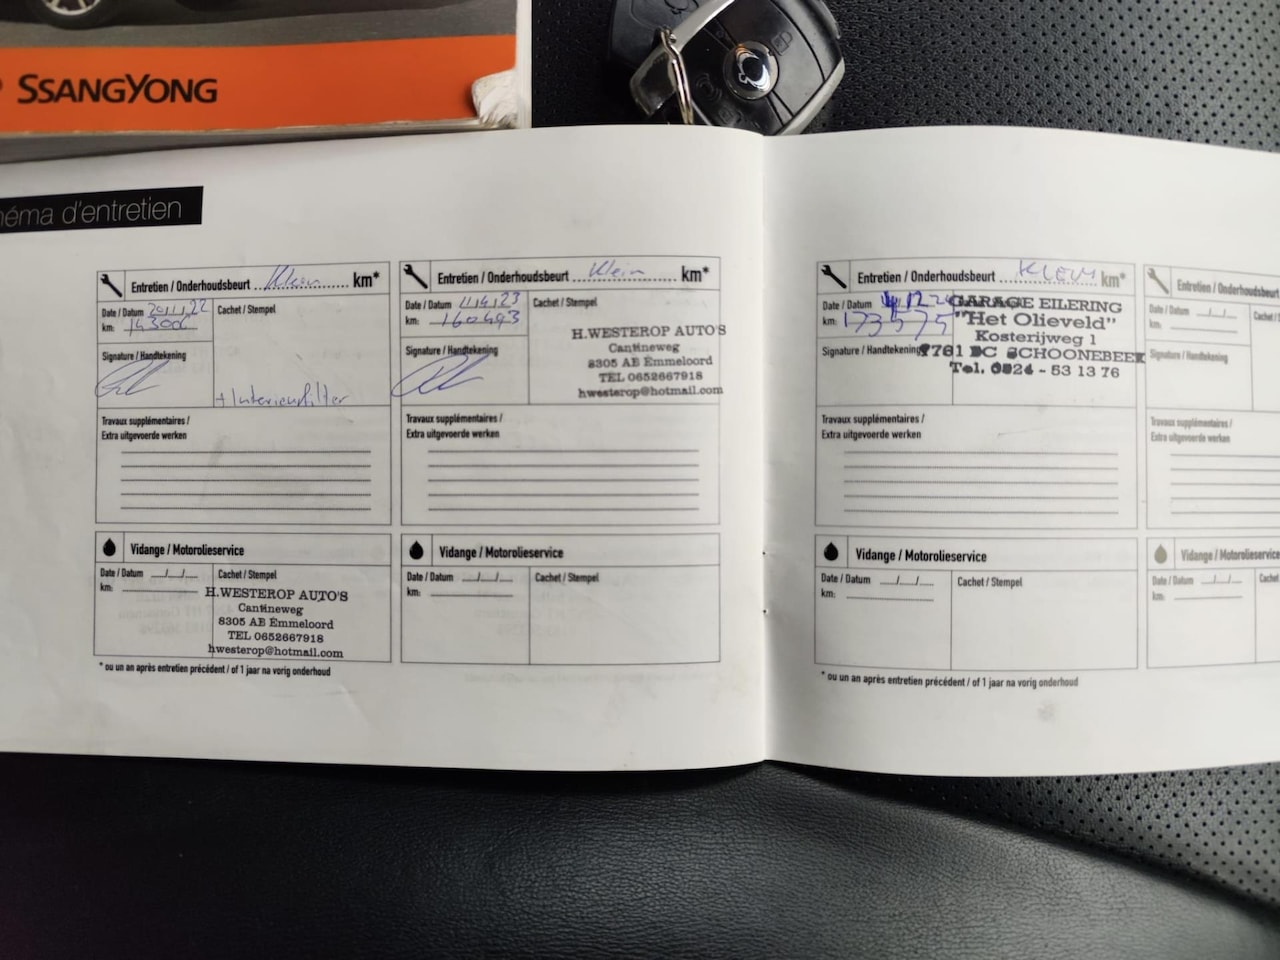 SSANGYONG
éma d'entretien
Entretien / Onderhoudsbeurt Klein km*
Date / Datum 20.11.22
km:
Cachet / Stempel
Signature / Handtekening
+ Interieurfilter
Travaux supplémentaires /
Extra uitgevoerde werken
Vidange / Motorolieservice
Date / Datum __/__/__
km:
Cachet / Stempel
H.WESTEROP AUTO'S
Cantineweg
8305 AB Emmeloord
TEL 0652667918
hwesterop@hotmail.com
* ou un an après entretien précédent / of 1 jaar na vorig onderhoud
Entretien / Onderhoudsbeurt Klein km*
Date / Datum 11.4.23
km: 160493
Cachet / Stempel
Signature / Handtekening
H.WESTEROP AUTO'S
Cantineweg
8305 AB Emmeloord
TEL 0652667918
hwesterop@hotmail.com
Travaux supplémentaires /
Extra uitgevoerde werken
Vidange / Motorolieservice
Date / Datum __/__/__
km:
Cachet / Stempel
Entretien / Onderhoudsbeurt KLEIN km*
Date / Datum
km: 173575
Signature / Handtekening
GARAGE EILERING
"Het Olieveld"
Kosterijweg 1
7761 DC SCHOONEBEEK
Tel. 0524 - 53 13 76
Travaux supplémentaires /
Extra uitgevoerde werken
Vidange / Motorolieservice
Date / Datum __/__/__
km:
Cachet / Stempel
* ou un an après entretien précédent / of 1 jaar na vorig onderhoud
Entretien / Onderhoudsbeurt
Date / Datum __/__/__
km:
Signature / Handtekening
Travaux supplémentaires /
Extra uitgevoerde werken
Vidange / Motorolieservice
Date / Datum __/__/__
km: